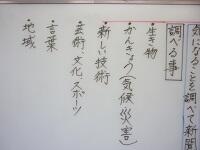 気になることを調べて新聞
調べる事
・生き物
・かんきょう(気候、災害)
・新しい技術
・芸術、文化、スポーツ
・言葉
・地域